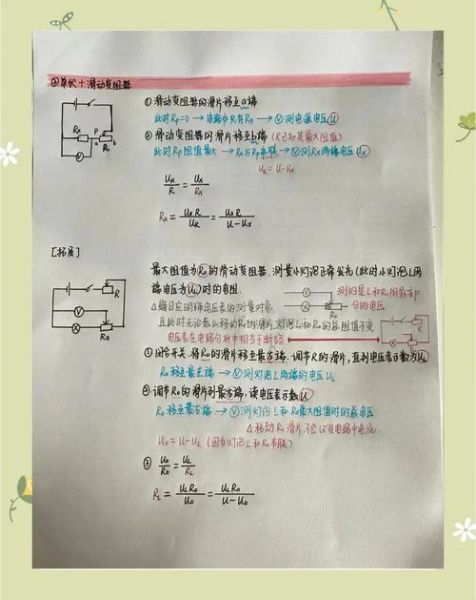 ②单伏+滑动变阻器
① 滑动变阻器的滑片移至a端
此时Rp=0 → 电路中只有Rx → Ⓥ测电源电压U
② 滑动变阻器的滑片移至b端 (R已知其最大阻值)
此时Rp阻值最大 → Rx与Rp串联 → Ⓥ测Rx两端电压Ux
UR = U-Ux
UR/R = Ux/Rx
Rx = UxR/UR = UxR/U-Ux
[拓展]
最大阻值为R0的滑动变阻器,测量小灯泡正常发光(此时小灯泡L两
端电压为UL)时的电阻.
测的是L和R0
分的电压
△题目应明确电压表的测量对象.
且此时无论怎么移动R0的滑片,
电压表在电路分析中相当于断路
① 闭合开关,将R0的滑片移至最左端,调节R的滑片,直到电压表示数为UL
R0移至最左端 → Ⓥ测灯泡L两端的电压UL
② 调节R0的滑片到最右端,读电压表示数U
R0移至最右端 → Ⓥ测灯泡L和R0最大阻值时的总电压
△移动R0滑片不会改变电路中电流
U0 = U-UL (因为灯泡L和R0串联)
③ U0/R0 = UL/RL
RL = ULR0/U0 = ULR0/U-U0